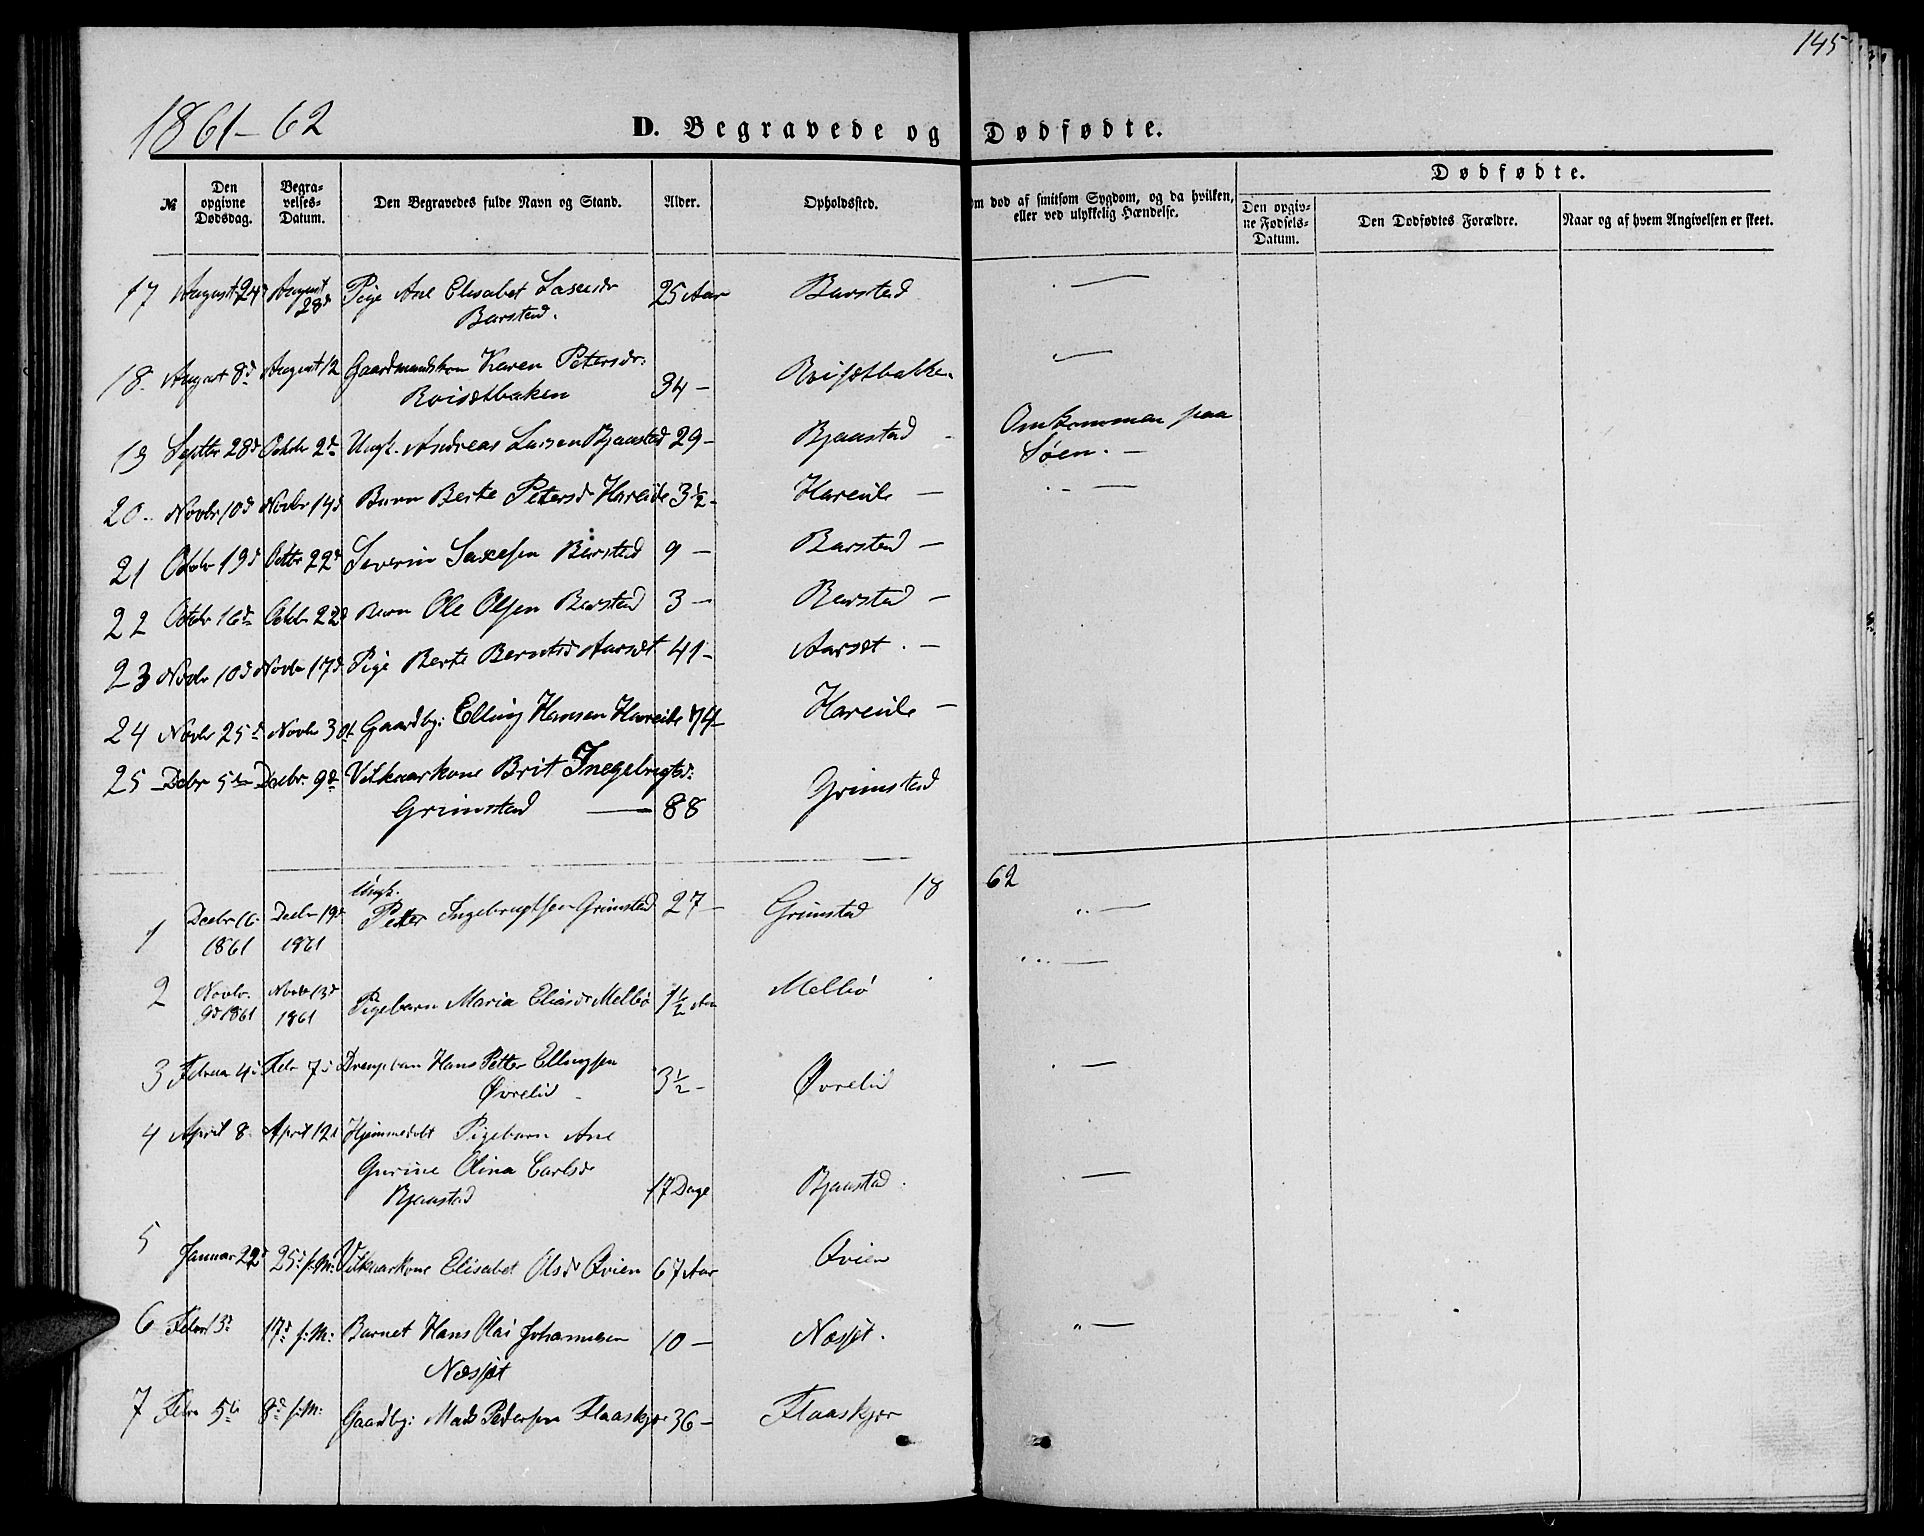 145
1861-62
D. Begravede og Dødfødte.
№
Den opgivne Dødsdag.
Begravelses-Datum.
Den Begravedes fulde Navn og Stand.
Alder.
Opholdssted.
om død af smitsom Sygdom, og da hvilken, eller ved ulykkelig Hændelse.
Dødfødte.
Den opgivne Fødsels-Datum.
Den Dødfødtes Forældre.
Naar og af hvem Angivelsen er skeet.
17 August 24d August 28d Pige Ane Elisabet 25 Aar Barstad —
Barstad.
18. August 8d August 12 Gaardmandskon Karen Petersdr: 34 — Roisætbakke. —
Roisætbaken
19 Septbr 28d Octobr 2d Ungk. Andreas Larsen Bjaastad 29 — Bjaastad — Omkommen paa
Søen. —
20. Novbr 10d Novbr 14d Barn Berte Petersd Hareide 3½ - Hareide — —
21 Octobr 19d Octbr 22d Severin Saxesen Barstad 9 — Barstad —
22 Octobr 16d Octobr 22d Barn Ole Olsen Barstad 3 — Barstad —
23 Novbr 10d Novbr 17d Pige Berte Berntsd Aarsæt 41 — Aarsæt. —
24 Novbr 25d Novbr 30t Gaardbg: Elling Hansen Hareide 74 — Hareide —
25 Decbr 5te Decbr 9d Vilkaarkone Brit Inegebrigtsd:
Grimstad — 88 Grimstad
18 62
1 Decbr 16. 1861 Decbr 19d 1861 Ungk. Petter Ingebrugtsen Grimstad 27 — Grimstad „ —
2 Novbr. 9d 1861 Novbr 13d 1861 Pigebarn Maria Eliasdr Melbø 1½ Aar Melbø „ —
3 Februar 4d Febr 7d Drengebarn Hans Petter Ellingsen
Øvrelid 3½ — Øvrelid —
4 April 8. April 12d Hjemmedøbt Pigebarn Ane
Gurine Elina Carlsdr
Bjaastad 17 Dage Bjaastad. —
5 Januar 22d 25d s: M: Vilkaarkone Elisabet Olsdr Øvien 67 Aar Øvien
6 Febr 13d 17d s: M: Barnet Hans Olai Johannesen 10 — Næssæt. „ —
Næssæt
7 Febr 5te 8d s: M: Gaardbg: Mads Pedersen Flaaskjær 36 — Flaaskjær